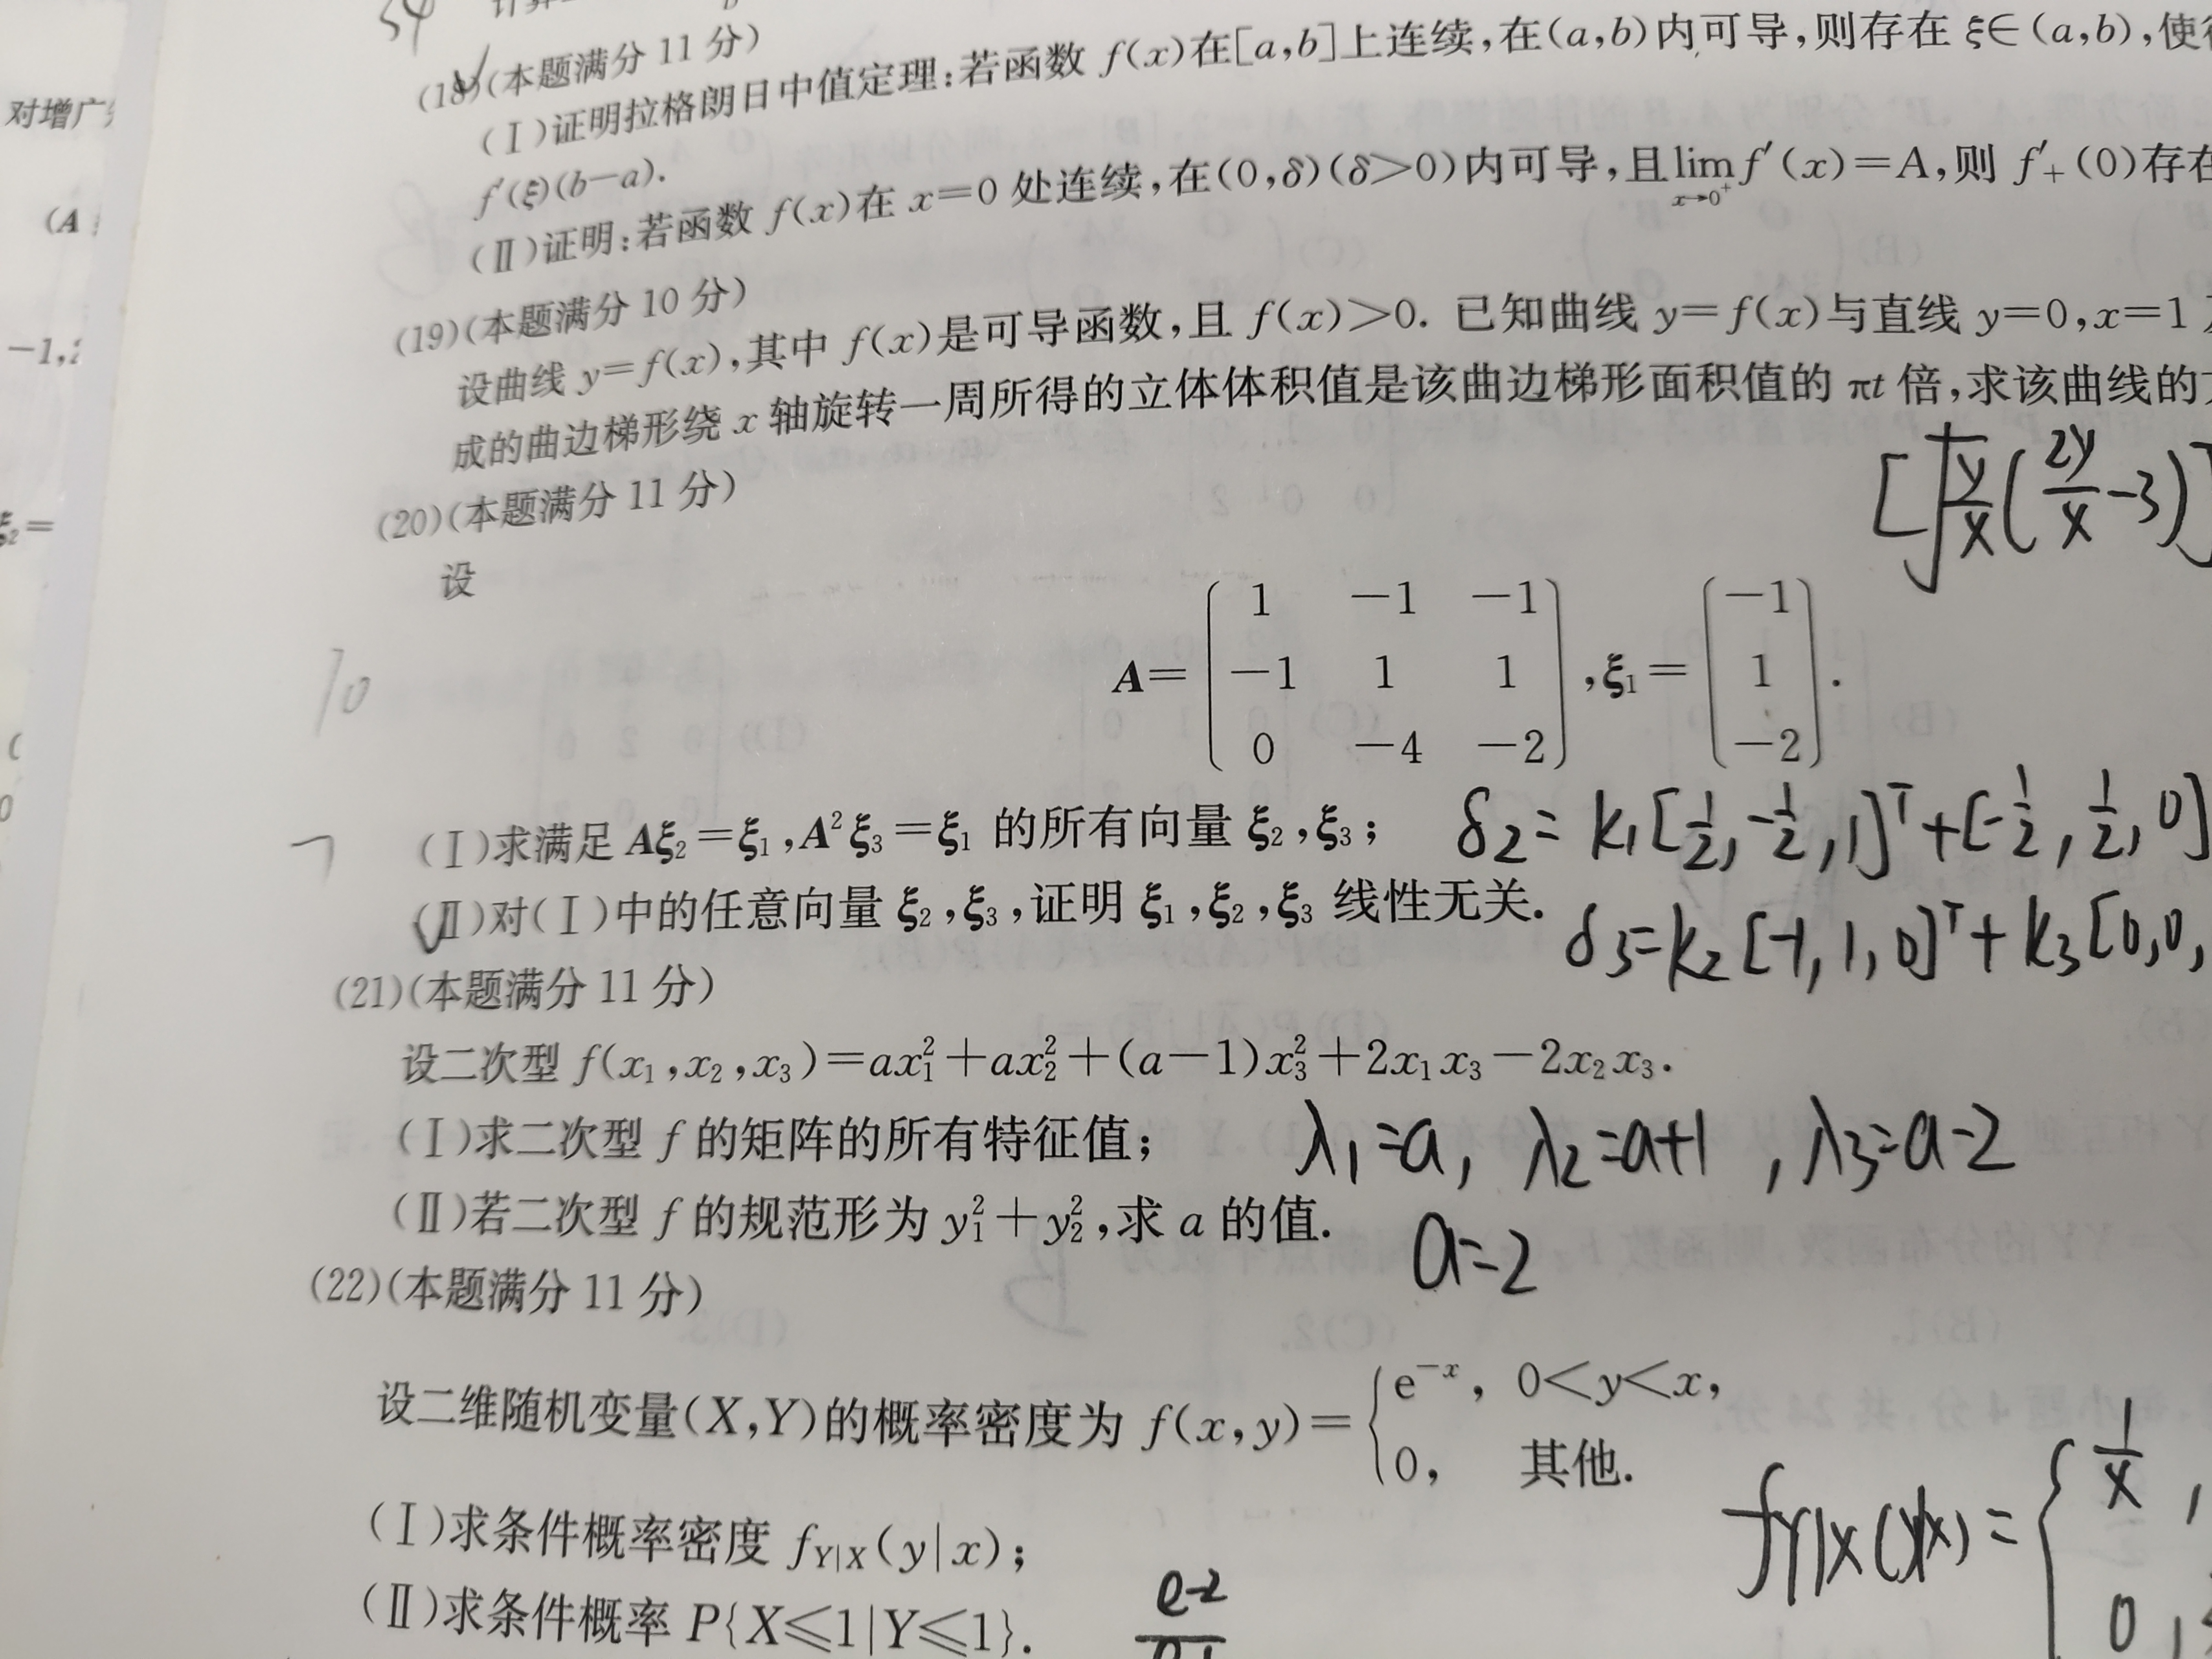 对增广
(A
-1,
ξ₂=
(18)(本题满分 11 分)
(Ⅰ)证明拉格朗日中值定理:若函数 f(x)在[a,b]上连续,在(a,b)内可导,则存在 ξ∈(a,b),使
f′(ξ)(b-a).
(Ⅱ)证明:若函数 f(x)在 x=0 处连续,在(0,δ)(δ>0)内可导,且lim_{x→0⁺} f′(x)=A,则 f′₊(0)存在
(19)(本题满分 10 分)
设曲线 y=f(x),其中 f(x)是可导函数,且 f(x)>0. 已知曲线 y=f(x)与直线 y=0,x=1
成的曲边梯形绕 x 轴旋转一周所得的立体体积值是该曲边梯形面积值的 πt 倍,求该曲线的
[√(y/x)(2y/x-3)]
(20)(本题满分 11 分)
设
10
1 -1 -1 -1
A= -1 1 1 ,ξ₁= 1 .
0 -4 -2 -2
(Ⅰ)求满足 Aξ₂=ξ₁,A²ξ₃=ξ₁ 的所有向量 ξ₂,ξ₃; δ₂= k₁[1/2,-1/2,1]ᵀ+[-1/2,1/2,0]
(Ⅱ)对(Ⅰ)中的任意向量 ξ₂,ξ₃,证明 ξ₁,ξ₂,ξ₃ 线性无关. δ₃=k₂[-1,1,0]ᵀ+k₃[0,0,
(21)(本题满分 11 分)
设二次型 f(x₁,x₂,x₃)=ax₁²+ax₂²+(a-1)x₃²+2x₁x₃-2x₂x₃.
(Ⅰ)求二次型 f 的矩阵的所有特征值; λ₁=a, λ₂=a+1 ,λ₃=a-2
(Ⅱ)若二次型 f 的规范形为 y₁²+y₂²,求 a 的值. a=2
(22)(本题满分 11 分)
设二维随机变量(X,Y)的概率密度为 f(x,y)={ e⁻ˣ, 0<y<x,
0, 其他.
(Ⅰ)求条件概率密度 f_{Y|X}(y|x); f_{Y|X}(y|x)={ 1/x ,
0,
(Ⅱ)求条件概率 P{X≤1|Y≤1}. e-2